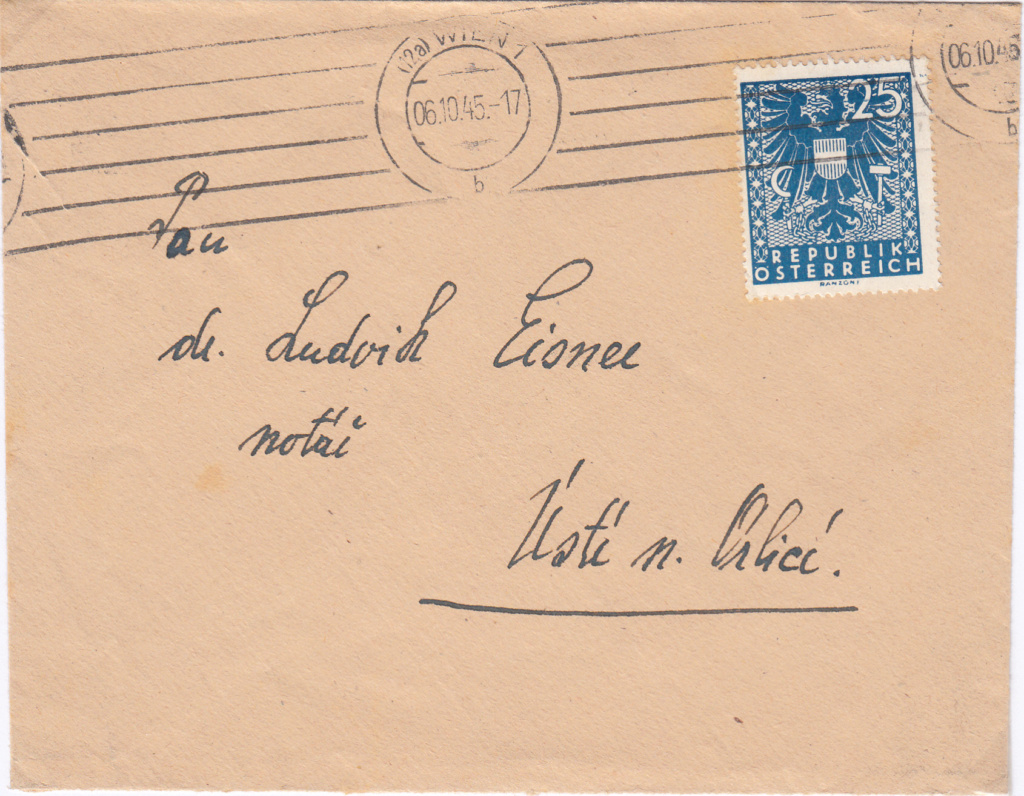 (12a) WIEN 1
06.10.45.-17
b
06.10.45
b
25
C T
REPUBLIK
ÖSTERREICH
RANZONI
Pan
dr. Ludvik Eisner
notář
Ústí n. Orlicí.